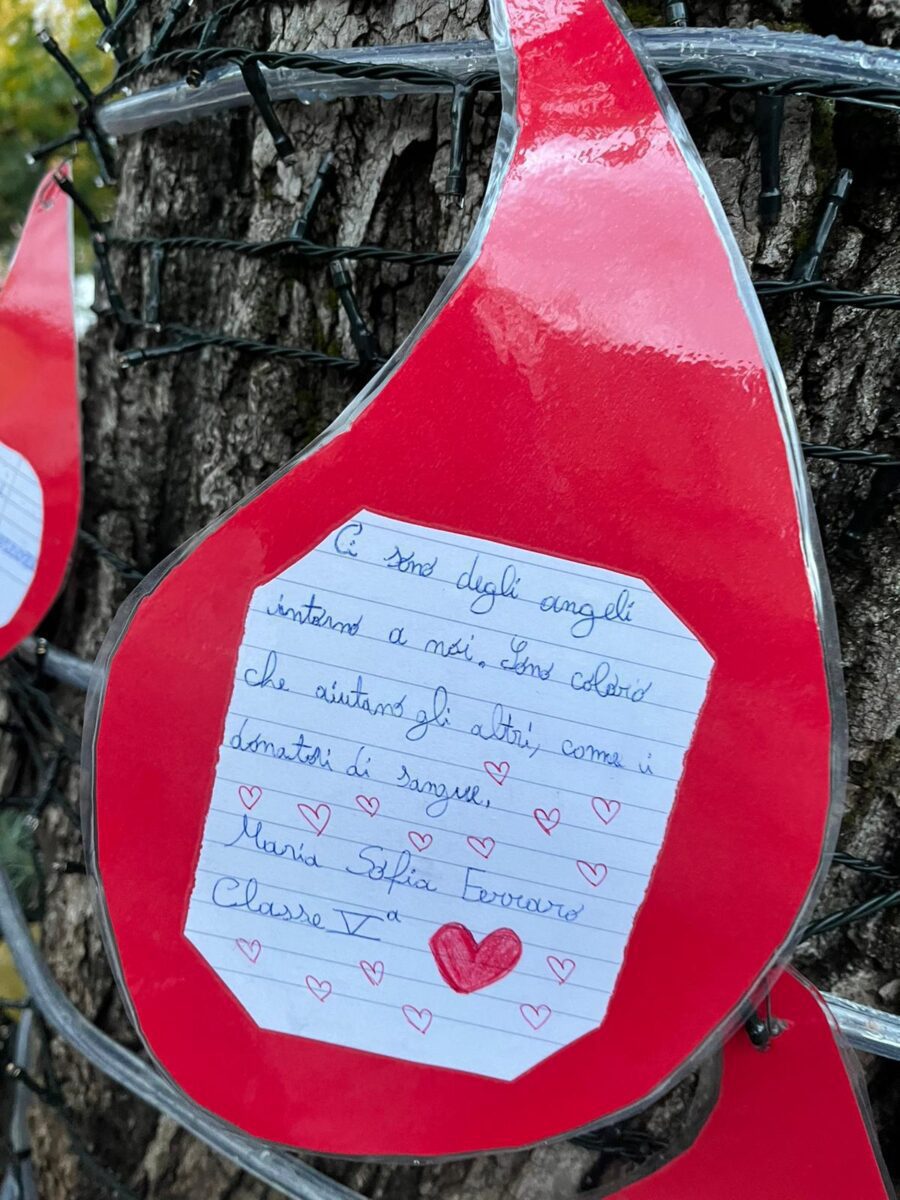 Ci sono degli angeli
intorno a noi. Sono coloro
che aiutano gli altri, come i
donatori di sangue.
Maria Sofia Ferraro
Classe Vª